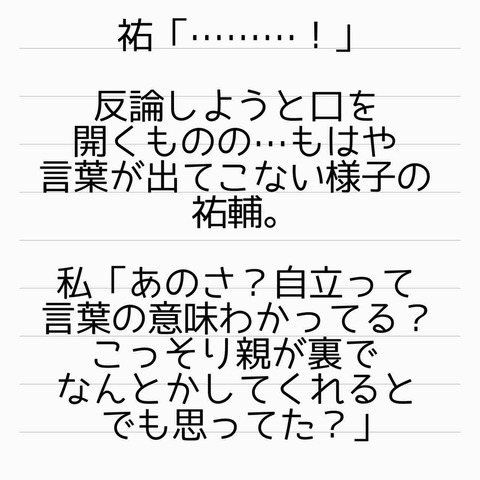 祐「………！」
反論しようと口を
開くものの…もはや
言葉が出てこない様子の
祐輔。
私「あのさ？自立って
言葉の意味わかってる？
こっそり親が裏で
なんとかしてくれると
でも思ってた？」